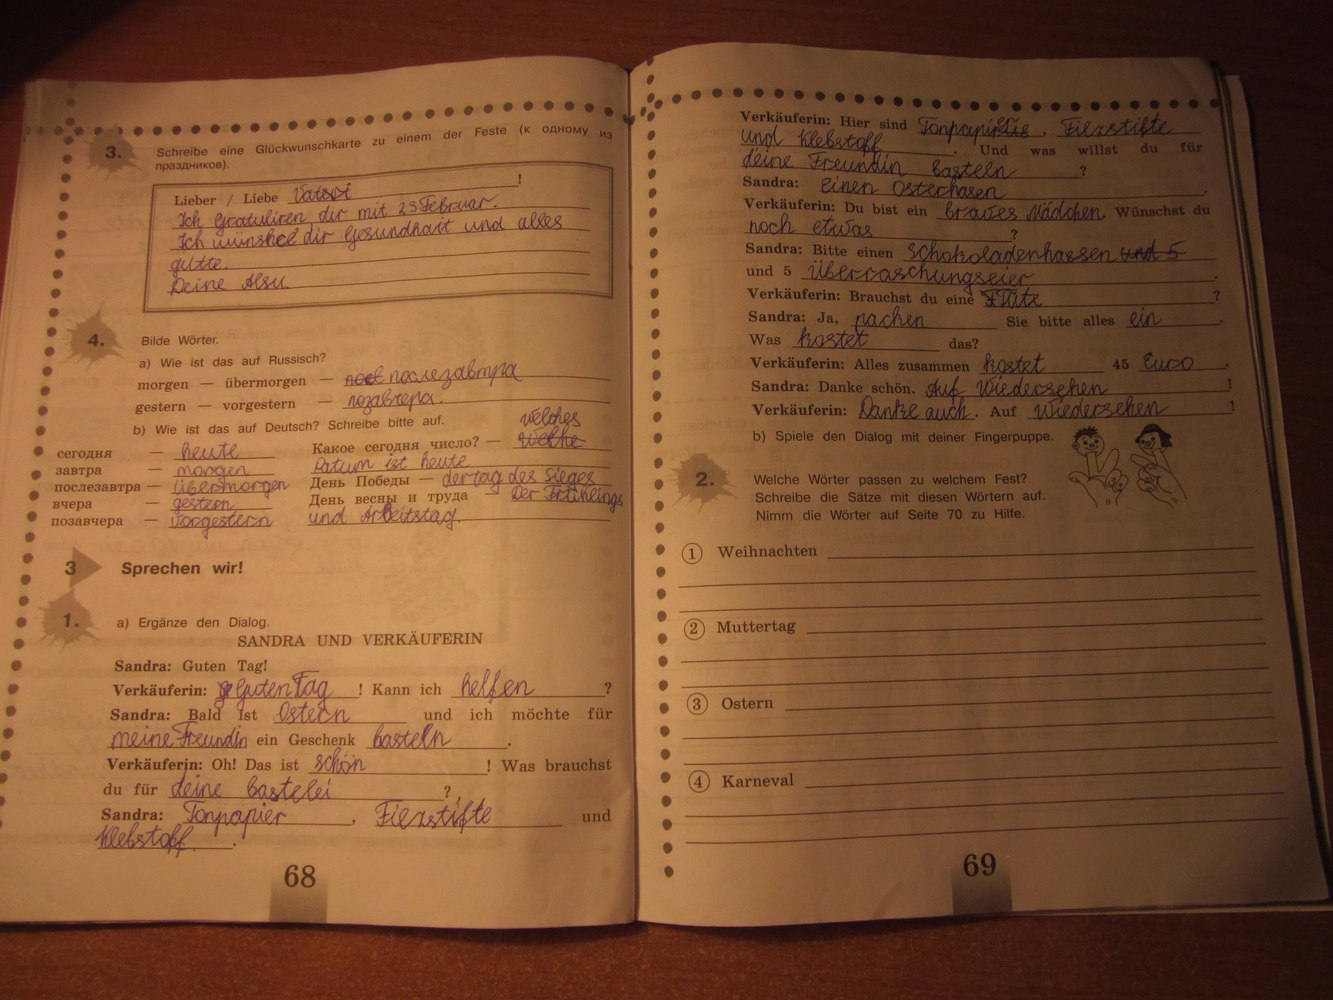 3. Schreibe eine Glückwunschkarte zu einem der Feste (к одному из
праздников).
Lieber / Liebe !
Ich gratuliren dir mit 23 Februar.
Ich wünschel dir Gesundhait und alles
gutte.
Deine Alsu.
4. Bilde Wörter.
a) Wie ist das auf Russisch?
morgen — übermorgen — послезавтра
gestern — vorgestern — позавчера.
b) Wie ist das auf Deutsch? Schreibe bitte auf.
welches
сегодня — heute Какое сегодня число? — welche
завтра — morgen Datum ist heute
послезавтра — übermorgen День Победы — der tag des Sieges
вчера — gestern День весны и труда — Der Frühlings
позавчера — vorgestern und Arbeitstag.
3 Sprechen wir!
1. a) Ergänze den Dialog.
SANDRA UND VERKÄUFERIN
Sandra: Guten Tag!
Verkäuferin: Guten Tag ! Kann ich helfen ?
Sandra: Bald ist Ostern und ich möchte für
meine Freundin ein Geschenk basteln .
Verkäuferin: Oh! Das ist schön ! Was brauchst
du für deine bastelei ?
Sandra: Tonpapier , Fierstifte und
Klebstoff .
68
Verkäuferin: Hier sind , Fierstifte
und Klebstoff . Und was willst du für
deine Freundin basteln ?
Sandra: einen Osterhasen .
Verkäuferin: Du bist ein braves Mädchen. Wünschst du
noch etwas ?
Sandra: Bitte einen Schokoladenhasen und 5
und 5 Überraschungseier .
Verkäuferin: Brauchst du eine Tüte ?
Sandra: Ja, packen Sie bitte alles ein .
Was kostet das?
Verkäuferin: Alles zusammen kostet 45 Euro .
Sandra: Danke schön. Auf Wiedersehen !
Verkäuferin: Danke auch. Auf Wiedersehen !
b) Spiele den Dialog mit deiner Fingerpuppe.
2. Welche Wörter passen zu welchem Fest?
Schreibe die Sätze mit diesen Wörtern auf.
Nimm die Wörter auf Seite 70 zu Hilfe.
1 Weihnachten
2 Muttertag
3 Ostern
4 Karneval
69